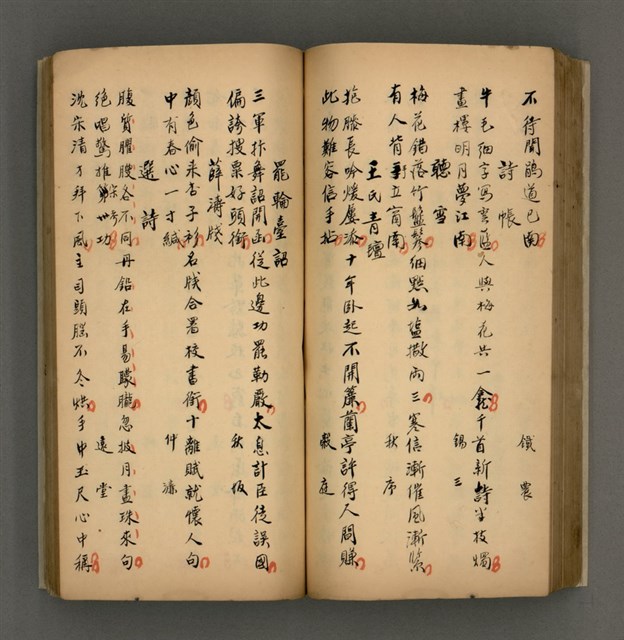 不待聞鵑道已南　鐵農
詩帳
牛毛細字寫蠻區人與梅花共一龕千首新詩半枝燭
畫樓明月夢江南　錫三
聽雪
梅花錯落竹鬖鬖細點如鹽撒兩三寒信漸催風漸緊
有人背立窗南　秋序
王氏青氈
抱膝長吟煖屢添十年臥起不開簾蘭亭評得人間賺
此物難容信手拈　毅庭
罷輪臺詔
三軍抃舞詔開函從此邊功罷勒嚴太息計臣徒誤國
偏誇搜粟好頭銜　秋坂
薛濤牋
顏色偷來杏子衫名牋合署校書銜十離賦就懷人句
中有春心一寸緘　仲濂
選詩
腹質臞臒各不同丹鉛在手易朦朧忽披月盡珠來句
絕唱驚推第一功　遠堂
沈宋清才拜下風主司頭腦不冬烘手中玉尺心中稱